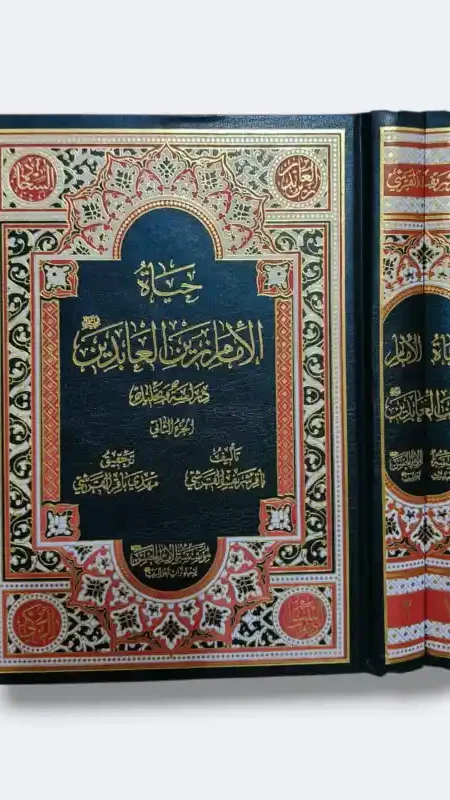 السجاد
زين العابدين
حياة
الإمام زين العابدين
دراسة وتحليل
الجزء الثاني
تأليف
باقر شريف القرشي
تحقيق
مهدي باقر القرشي
مؤسسة الإمام الحسن
باقر شريف القرشي
حياة الإمام
زين العابدين
٢
١